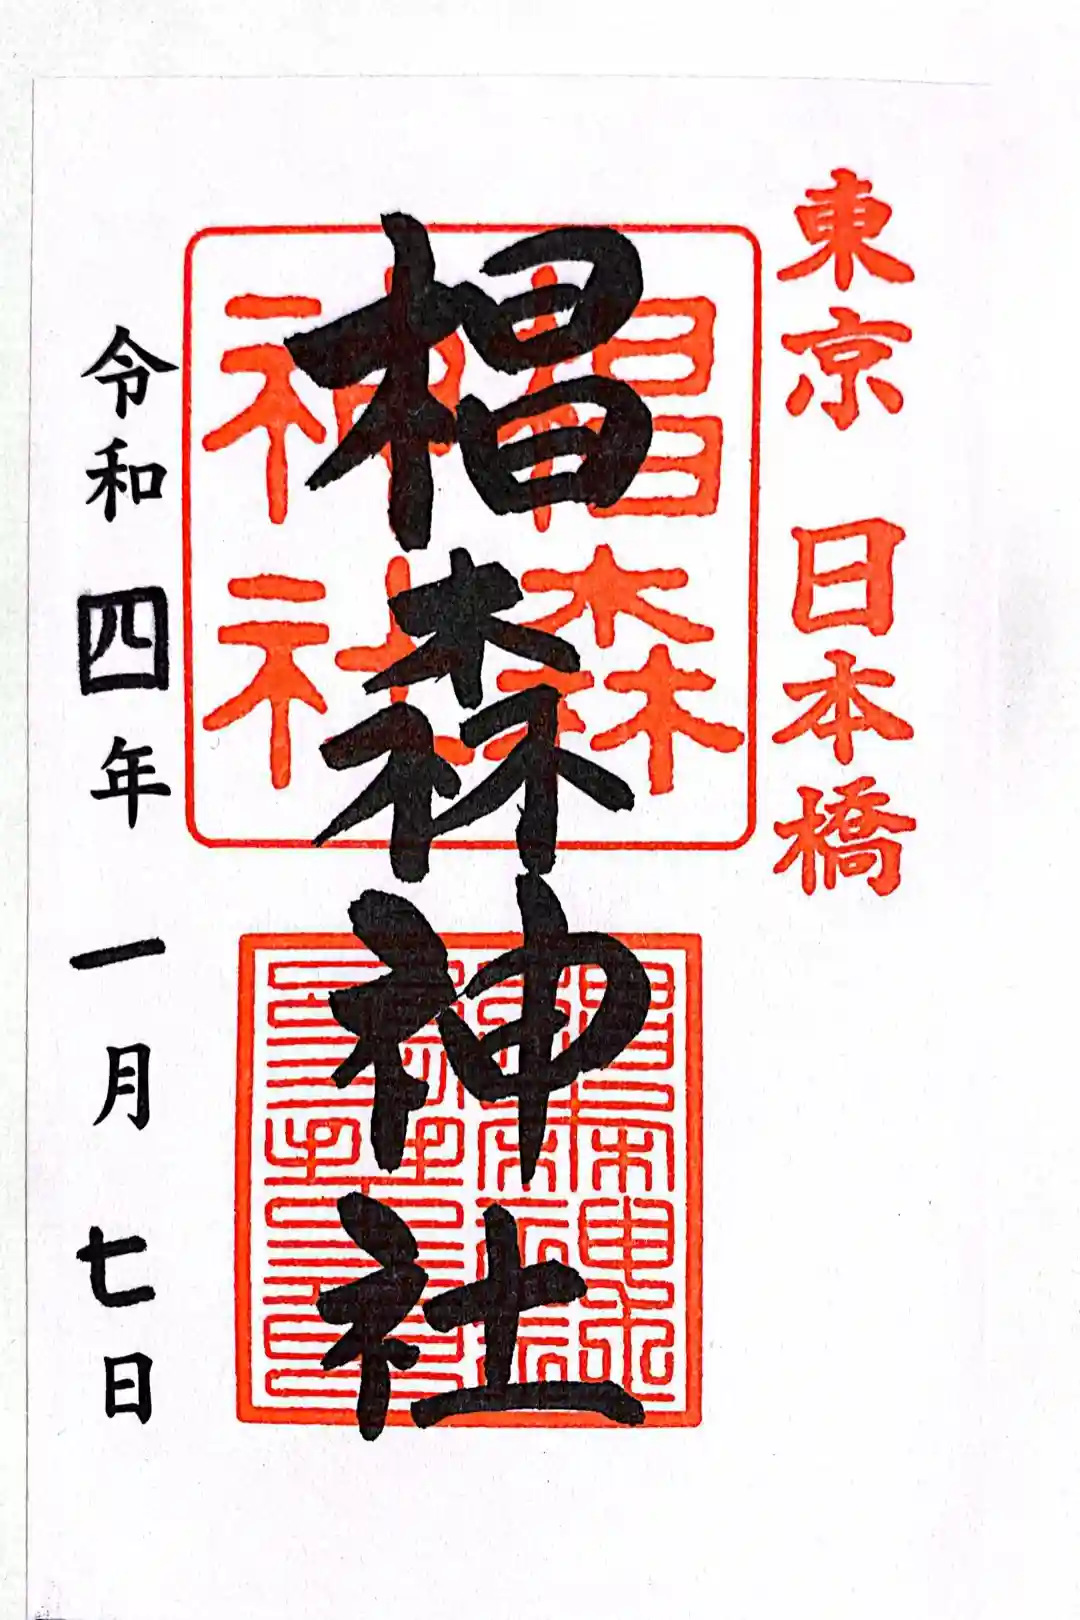 東京 日本橋
椙森神社
椙森
神社
令和四年一月七日